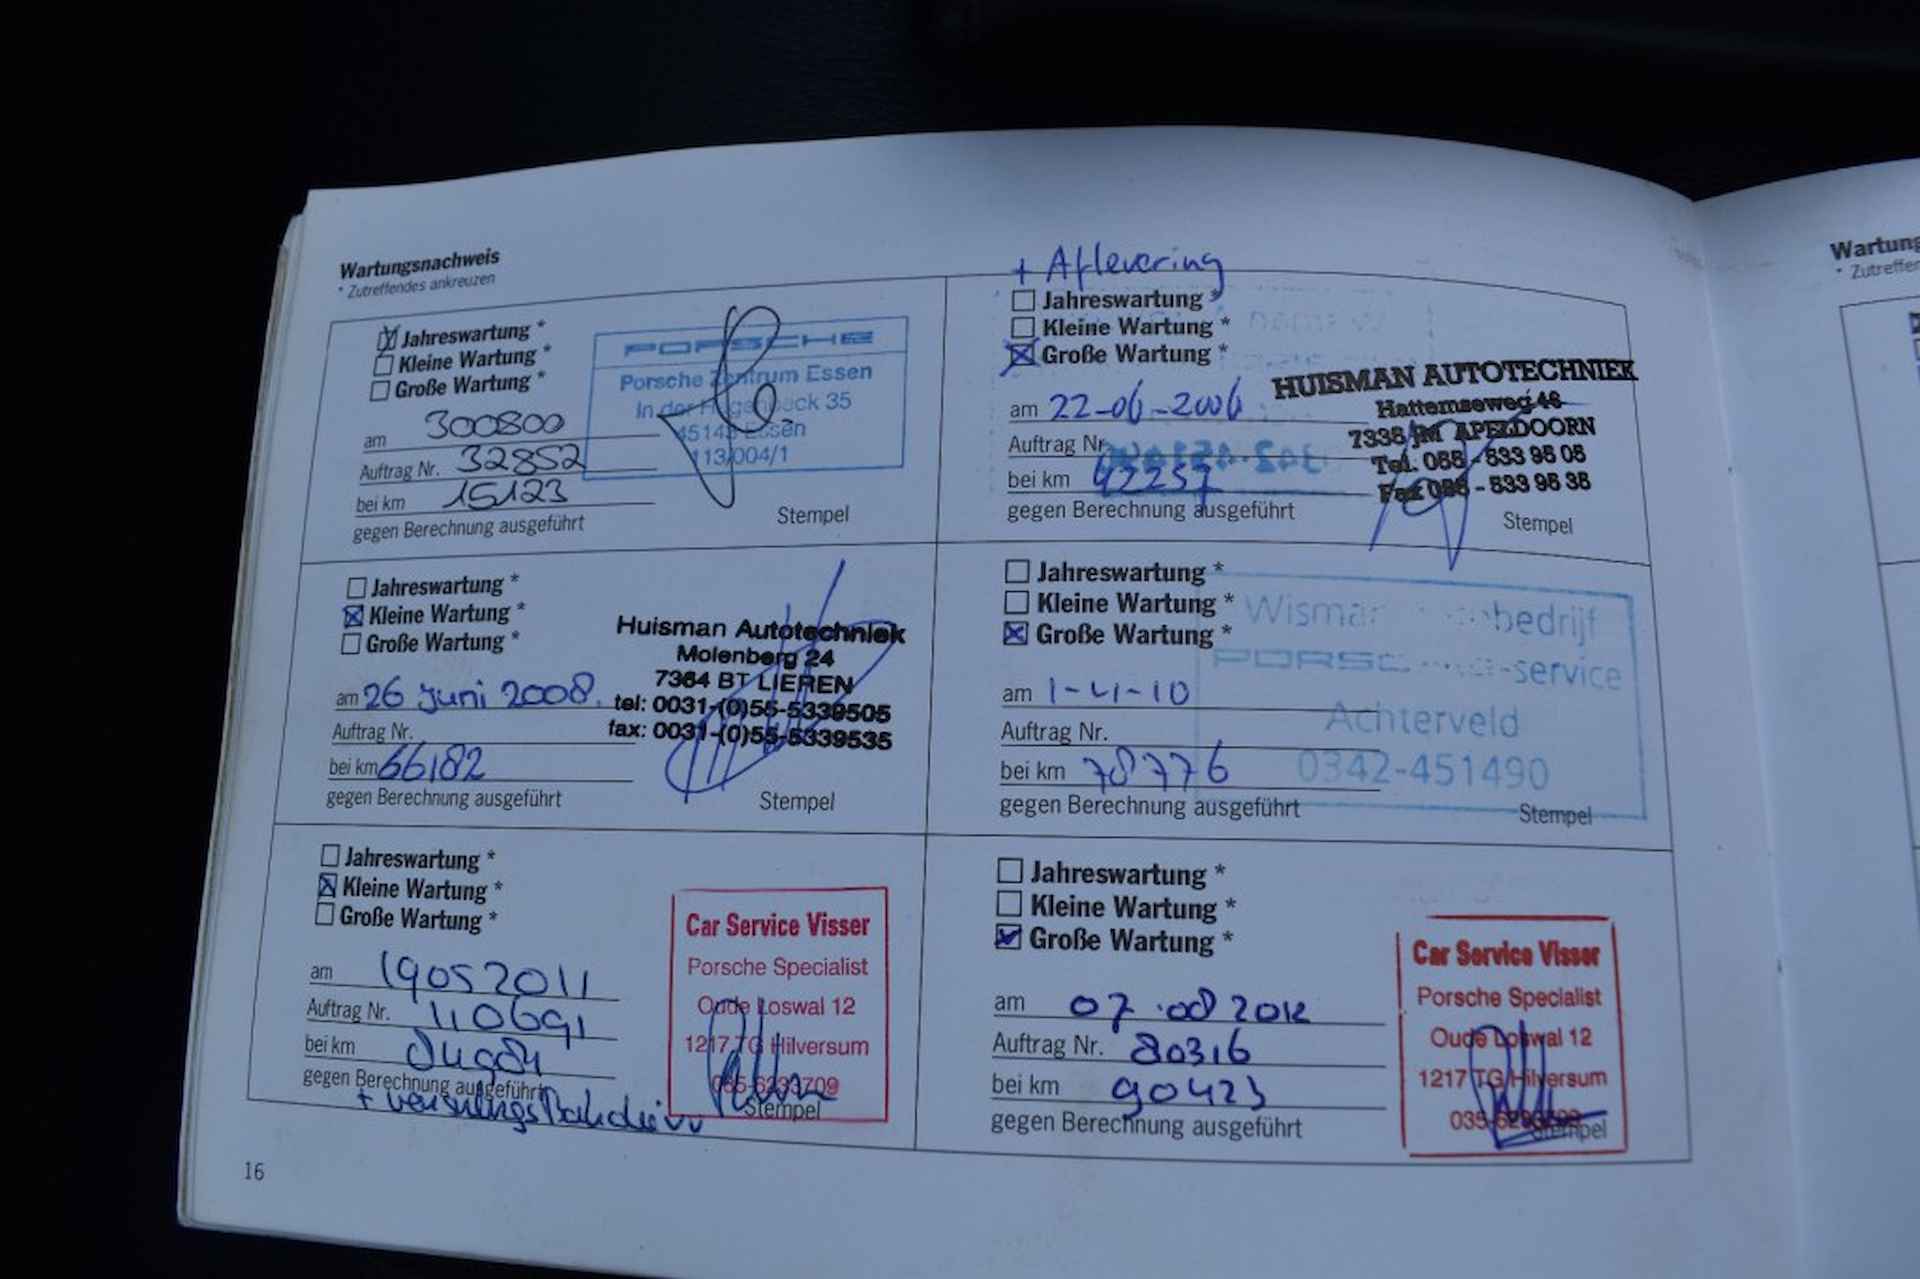 Wartungsnachweis
* Zutreffendes ankreuzen
Jahreswartung *
Kleine Wartung *
Große Wartung *
am 300800
Auftrag Nr. 32852
bei km 15123
gegen Berechnung ausgeführt
Stempel
PORSCHE
Porsche Zentrum Essen
In der Hagenbeck 35
45143 Essen
113/004/1
+ Aflevering
Jahreswartung *
Kleine Wartung *
Große Wartung *
am 22-06-2006
Auftrag Nr.
bei km 42257
gegen Berechnung ausgeführt
Stempel
HUISMAN AUTOTECHNIEK
Hattemseweg 48
APELDOORN
Jahreswartung *
Kleine Wartung *
Große Wartung *
am 26 Juni 2008.
Auftrag Nr.
bei km 66182
gegen Berechnung ausgeführt
Stempel
Huisman Autotechniek
Molenberg 24
7364 BT LIEREN
tel: 0031-(0)55-5339505
fax: 0031-(0)55-5339535
Jahreswartung *
Kleine Wartung *
Große Wartung *
am 1-4-10
Auftrag Nr.
bei km 78776
gegen Berechnung ausgeführt
Stempel
bedrijf
-service
Achterveld
0342-451490
Jahreswartung *
Kleine Wartung *
Große Wartung *
am 19052011
Auftrag Nr. 110691
bei km
gegen Berechnung ausgeführt
Stempel
Car Service Visser
Porsche Specialist
Oude Loswal 12
1217 TG Hilversum
Jahreswartung *
Kleine Wartung *
Große Wartung *
am 07 08 2012
Auftrag Nr. 80316
bei km 90423
gegen Berechnung ausgeführt
Stempel
Car Service Visser
Porsche Specialist
Oude Loswal 12
1217 TG Hilversum
16
Wartung
* Zutreffen